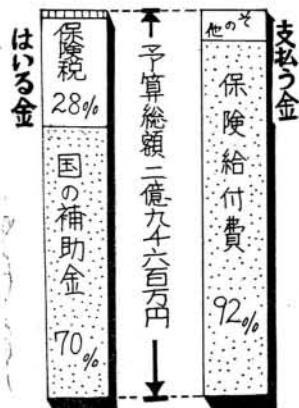 支払う金
その他
保険給付費
92%
予算総額二億九千六百万円
保険税
28%
国の補助金
70%
はいる金